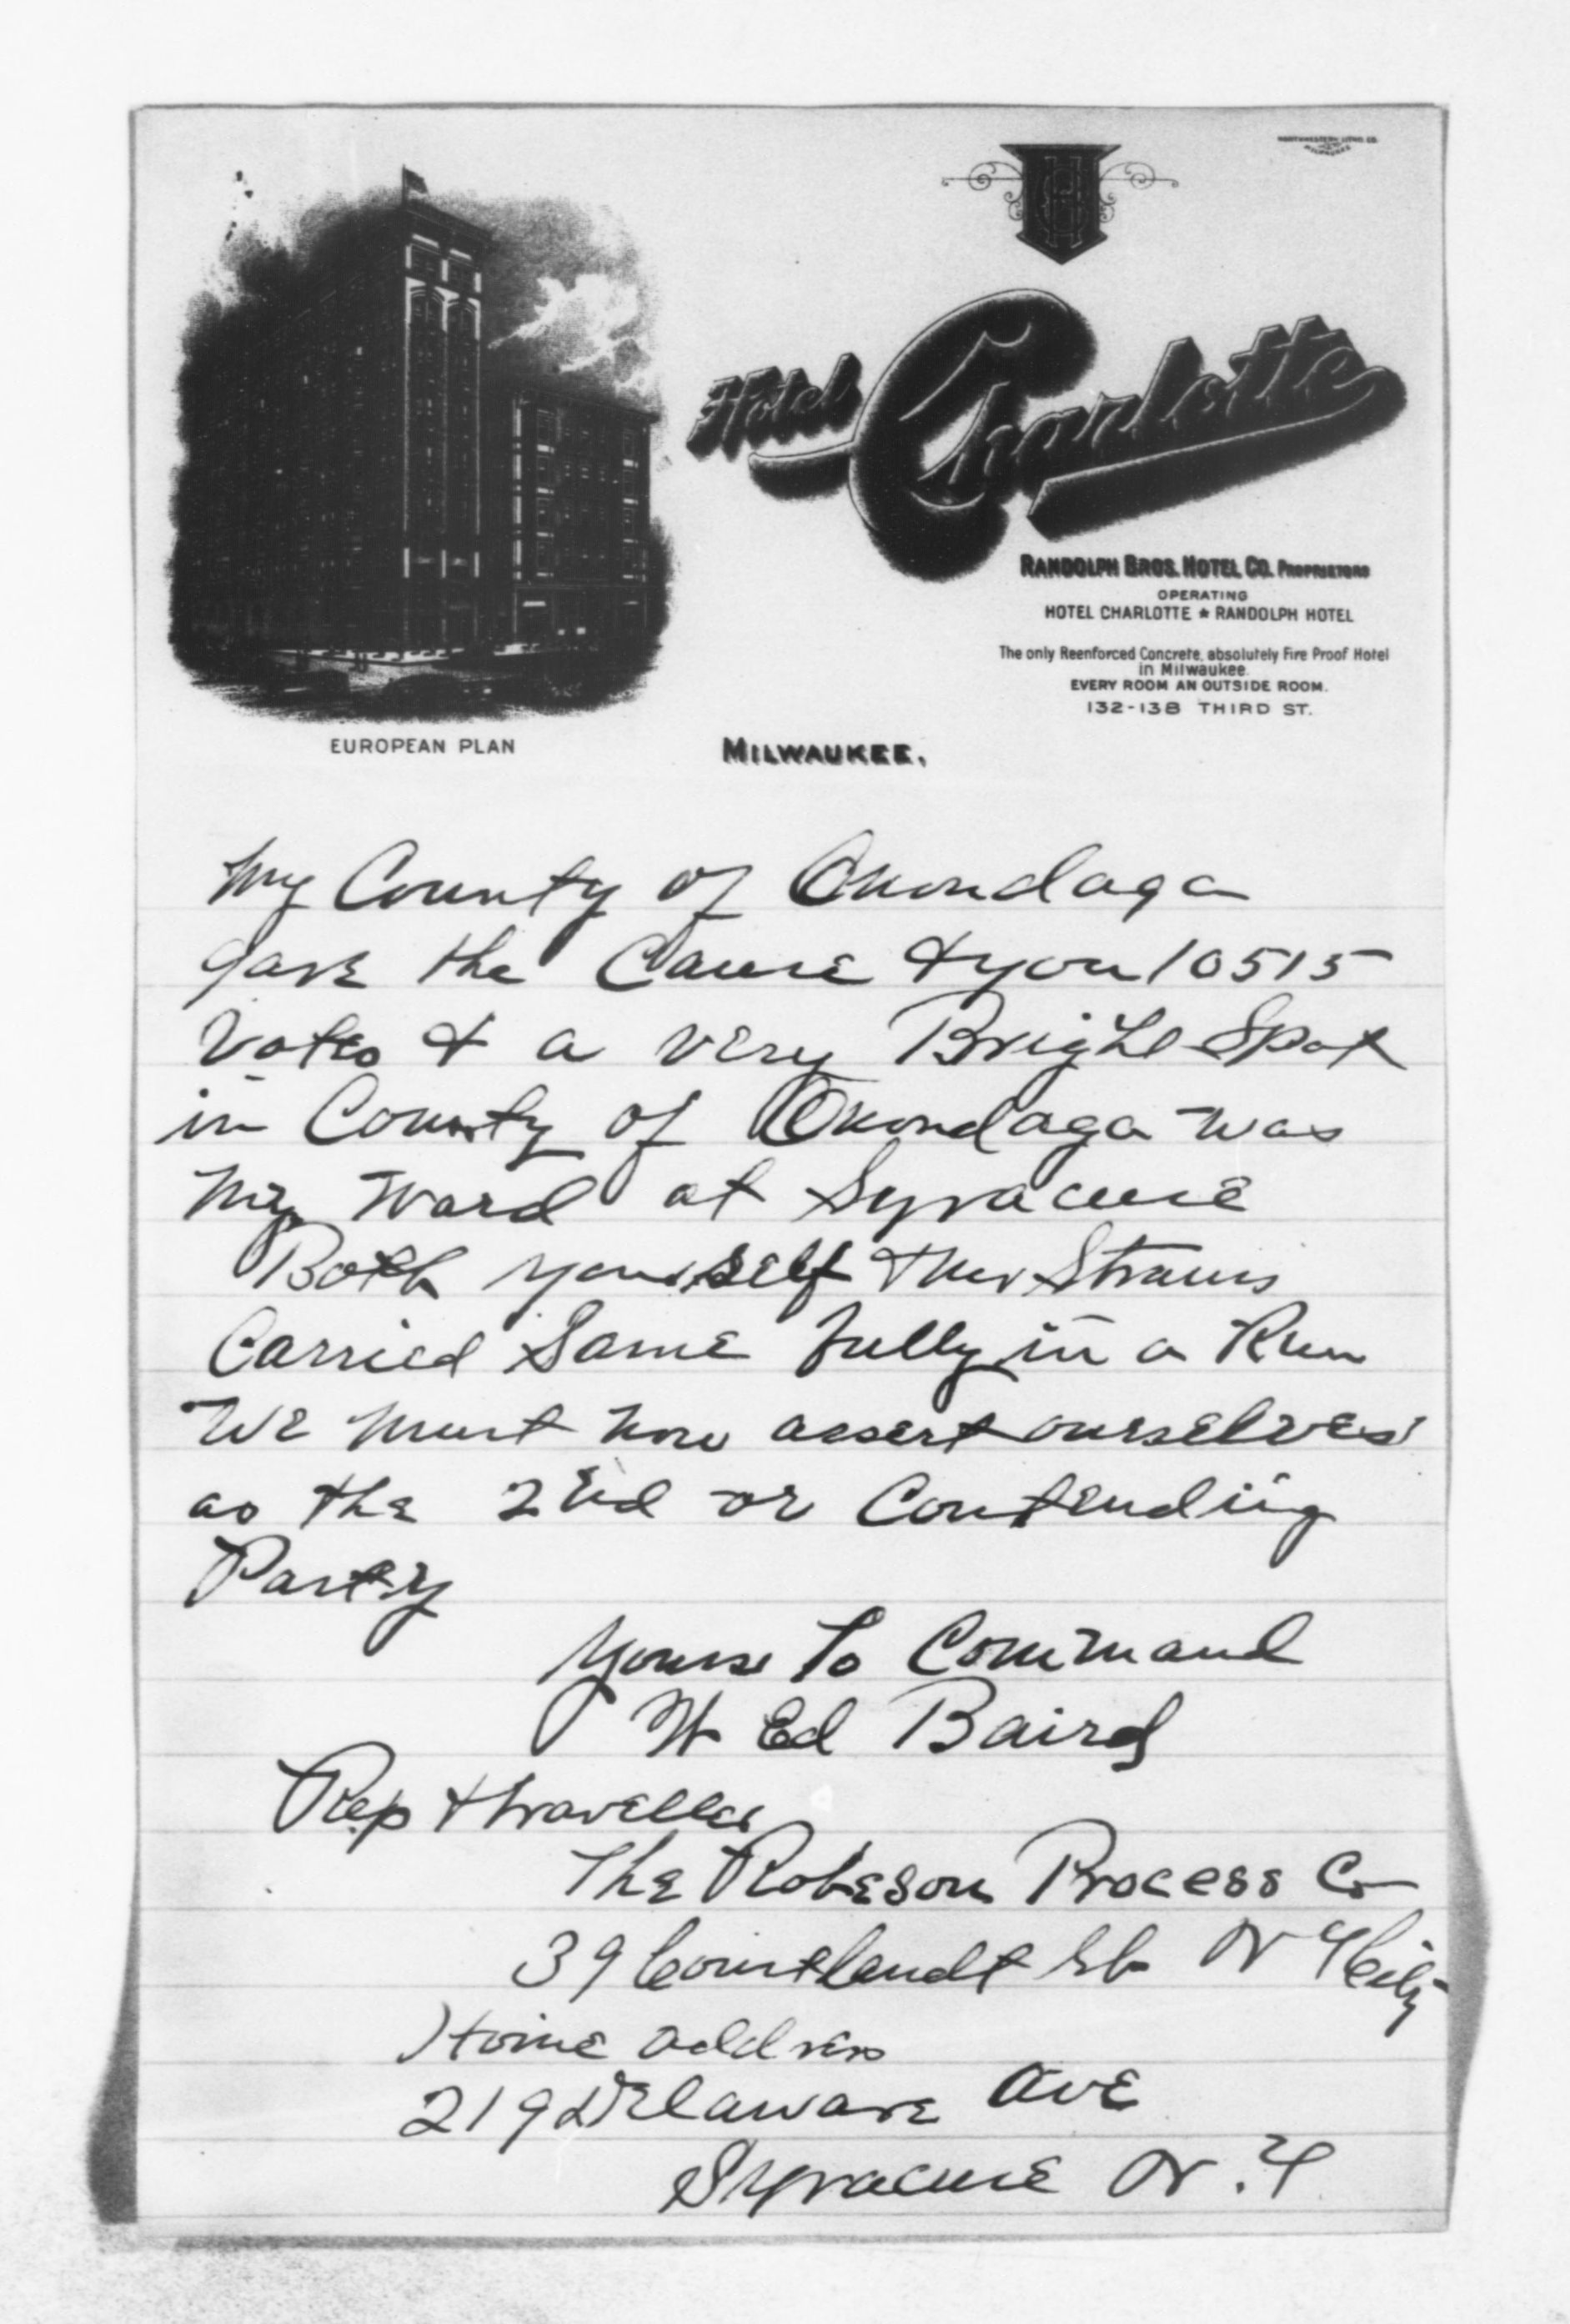 NORTHWESTERN LITHO. CO.
MILWAUKEE
Hotel Charlotte
RANDOLPH BROS. HOTEL CO. PROPRIETORS
OPERATING
HOTEL CHARLOTTE ★ RANDOLPH HOTEL
The only Reenforced Concrete, absolutely Fire Proof Hotel
in Milwaukee.
EVERY ROOM AN OUTSIDE ROOM.
132-138 THIRD ST.
EUROPEAN PLAN
MILWAUKEE,
My County of Onondaga
gave the Cause & you 10515
Votes & a very Bright Spot
in County of Onondaga was
My Ward at Syracuse
Both yourself & Straus
Carried Same fully in a Run
We Must now assert ourselves
as the 2nd or Contending
Party
Yours To Command
W Ed Baird
Rep & traveller
The Robeson Process Co
39 Courtlandt St N Y City
Home address
219 Delaware Ave
Syracuse N.Y